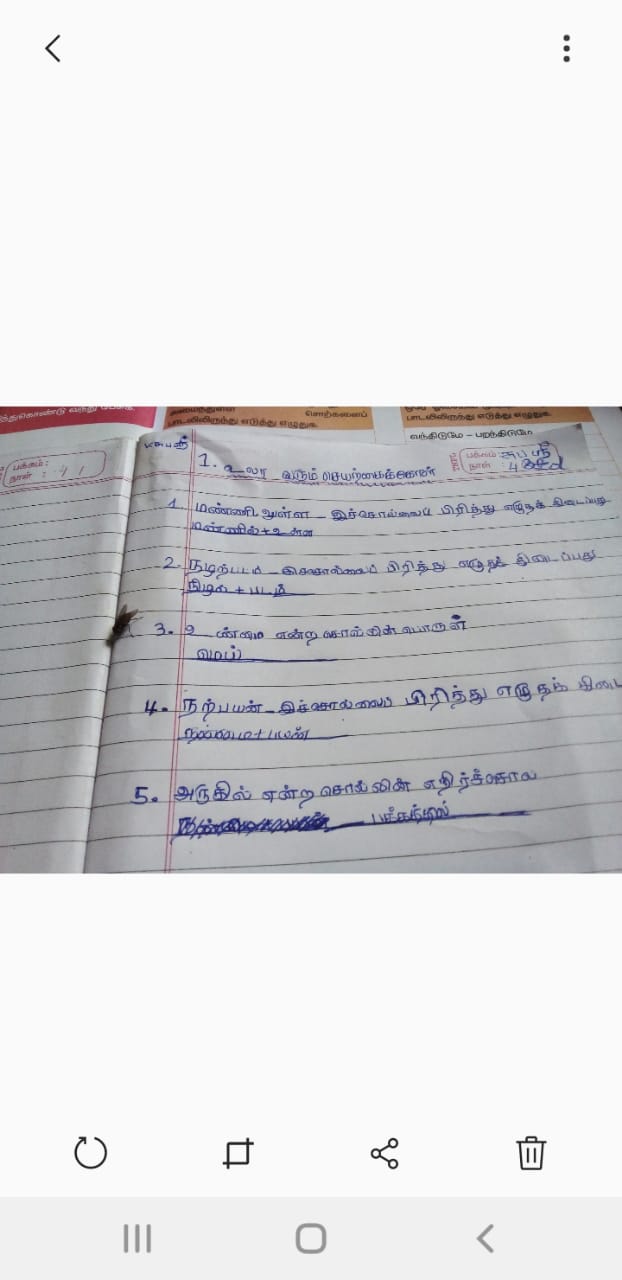 துகொண்டு வந்து
அமைந்துள்ள சொற்களைப்
பாடலிலிருந்து எடுத்து எழுதுக.
பாடலிலிருந்து எடுத்து எழுதுக.
வந்திடுமே – பறந்திடுமே
பக்கம் :
நாள் :
பக்கம் :
நாள் :
1. உலா வரும் செயற்கைக்கோள்
1. மண்ணிலுள்ள - இச்சொல்லைப் பிரித்து எழுதக் கிடைப்பது
மண்ணில்+உள்ள
2. நிழற்படம் - இச்சொல்லைப் பிரித்து எழுதக் கிடைப்பது
நிழல் + படம்
3. உண்மை என்ற சொல்லின் பொருள்
மெய்
4. நற்பயன் - இச்சொல்லைப் பிரித்து எழுதக் கிடை
நன்மை+பயன்
5. அருகில் என்ற சொல்லின் எதிர்ச்சொல்
பக்கத்தில்